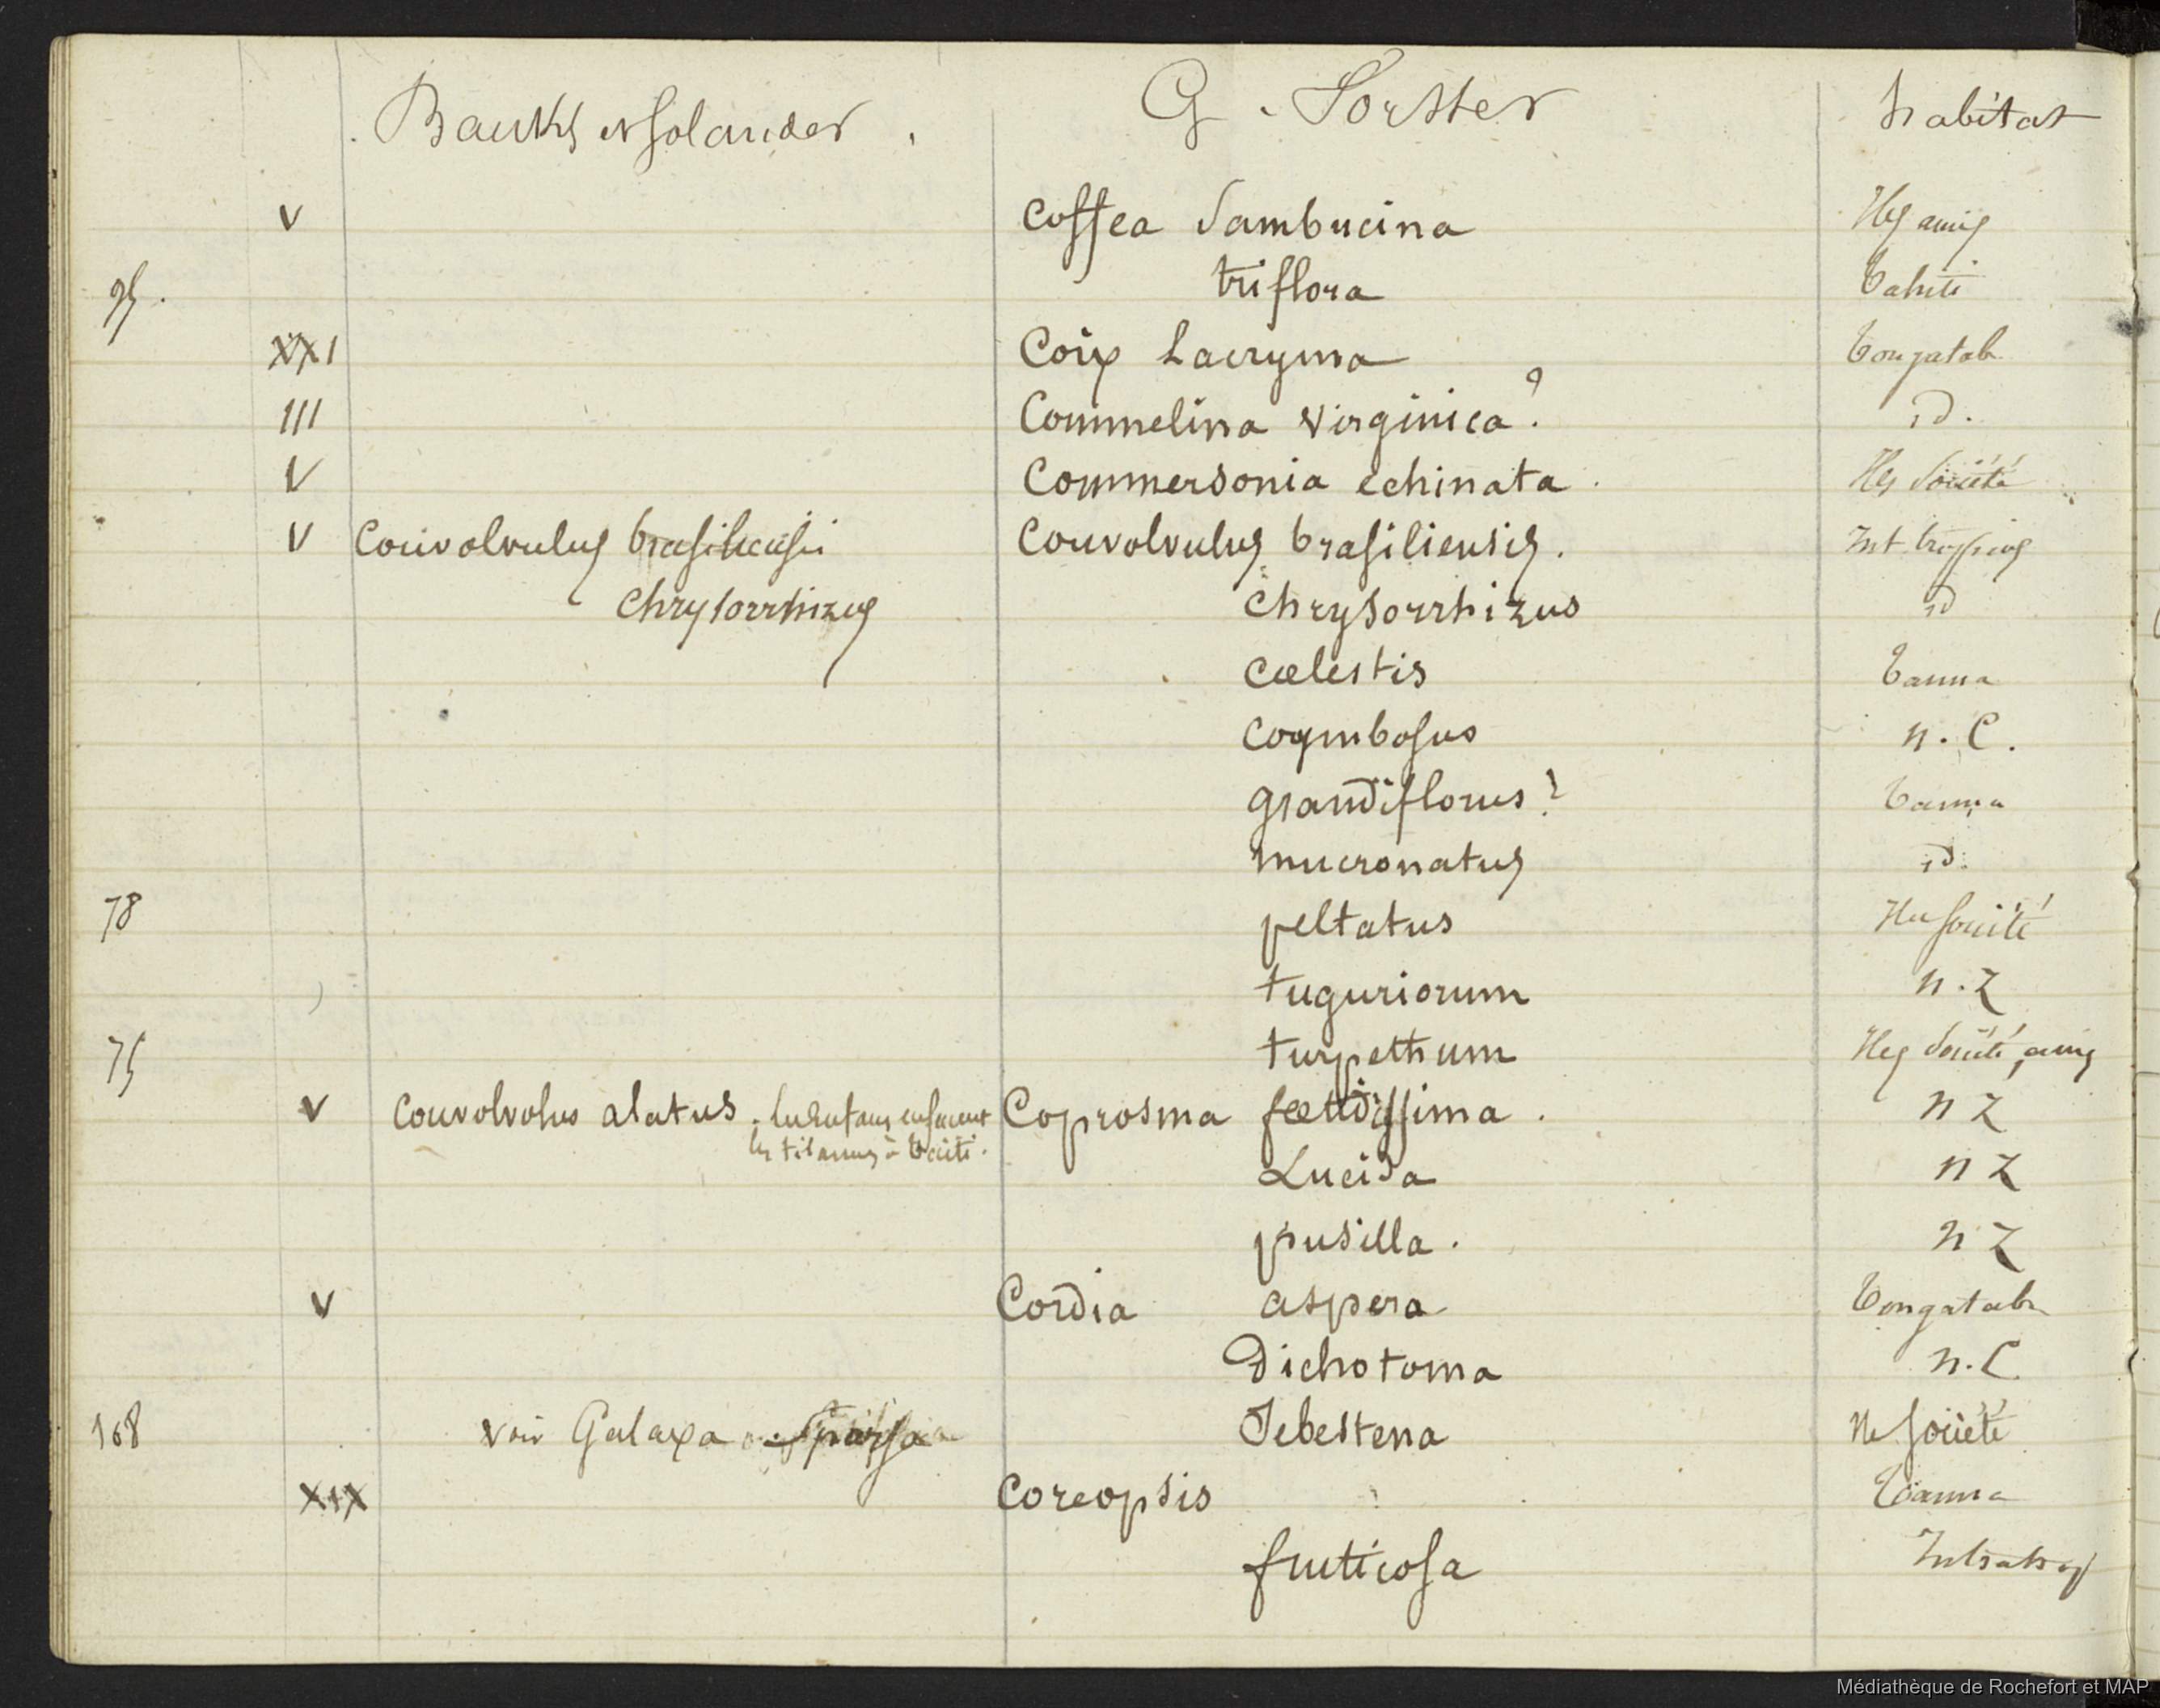 Banks et Solander . G. Forster habitat
V Coffea Sambucina Iles amis
95. triflora Tahiti
XXI Coix Lacryma Tongatab.
III Commelina Virginica? id.
V Commersonia echinata . Iles Société
V Convolvulus brasiliensis Convolvulus brasiliensis. Int. tropicos
Chrysorrhizus Chrysorrhizus id
Cœlestis Tanna
Corymbosus n. C.
grandiflorus? Tanna
mucronatus id.
78 peltatus Iles Société
tuguriorum n. Z
75 turpethum Iles Société, amis
V Convolvolus alatus . Coprosma fœtidissima . n Z
Lucida n Z
pusilla . n Z
V Cordia aspera Tongatab
Dichotoma n. C
168 voir Galaxa Sebestena Ile Société
XIX Coreopsis Tanna
fruticosa
Médiathèque de Rochefort et MAP